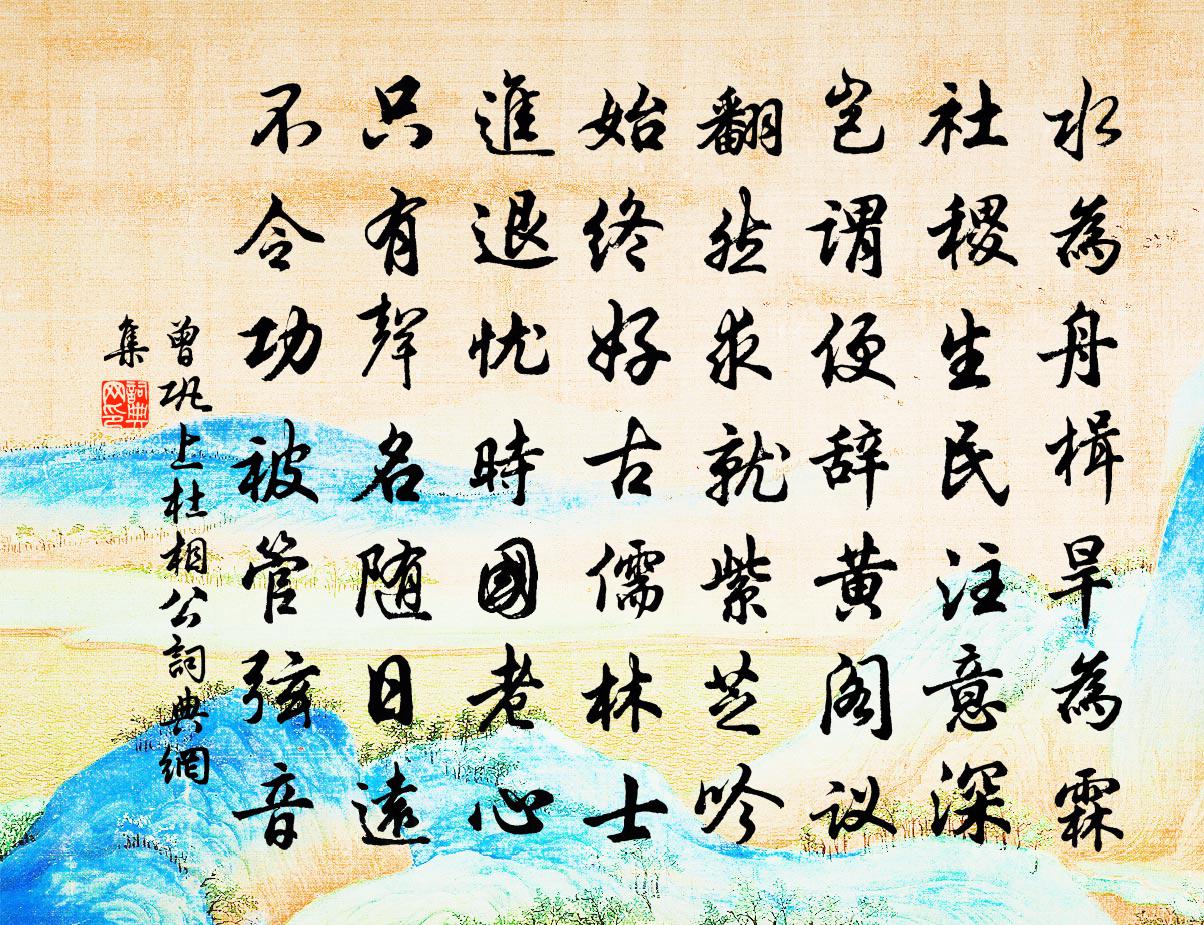 水為舟楫旱為霖
社稷生民注意深
岂謂便辞黄阁议
翻然求就紫芝吟
始终好古儒林士
進退忧時國老心
只有聲名随日遠
不令功被管弦音
曾巩上杜相公詞典網
集
詞典網印